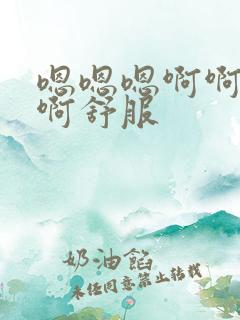 嗯嗯嗯啊啊
啊舒服
奶油馅
未经同意禁止转载